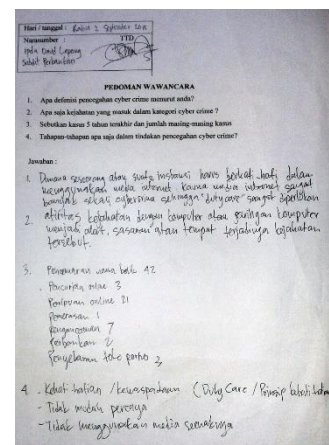 Hari / tanggal : Rabu 2 September
Narasumber : TTD
PEDOMAN WAWANCARA
1. Apa definisi pencegahan cyber crime menurut anda?
2. Apa saja kejahatan yang masuk dalam kategori cyber crime ?
3. Sebutkan kasus 5 tahun terakhir dan jumlah masing-masing kasus
4. Tahapan-tahapan apa saja dalam tindakan pencegahan cyber crime?
Jawaban :
1. Dimana seseorang atau suatu instansi harus berhati-hati dalam
menggunakan media internet karna media internet sangat
banyak sekali cybercrime sehingga "duty care" sangat diperlukan
2. aktifitas kejahatan dengan komputer atau jaringan komputer
menjadi alat, sasaran atau tempat terjadinya kejahatan
tersebut.
3. Pencemaran nama baik 42
. Pencurian online 3
Penipuan online 21
Pemerasan 1
Pengancaman 7
2
Penyebaran foto porno 2
4. - Kehati hatian / kewaspadaan (Duty Care / Prinsip
- Tidak mudah percaya
- Tidak menggunakan media